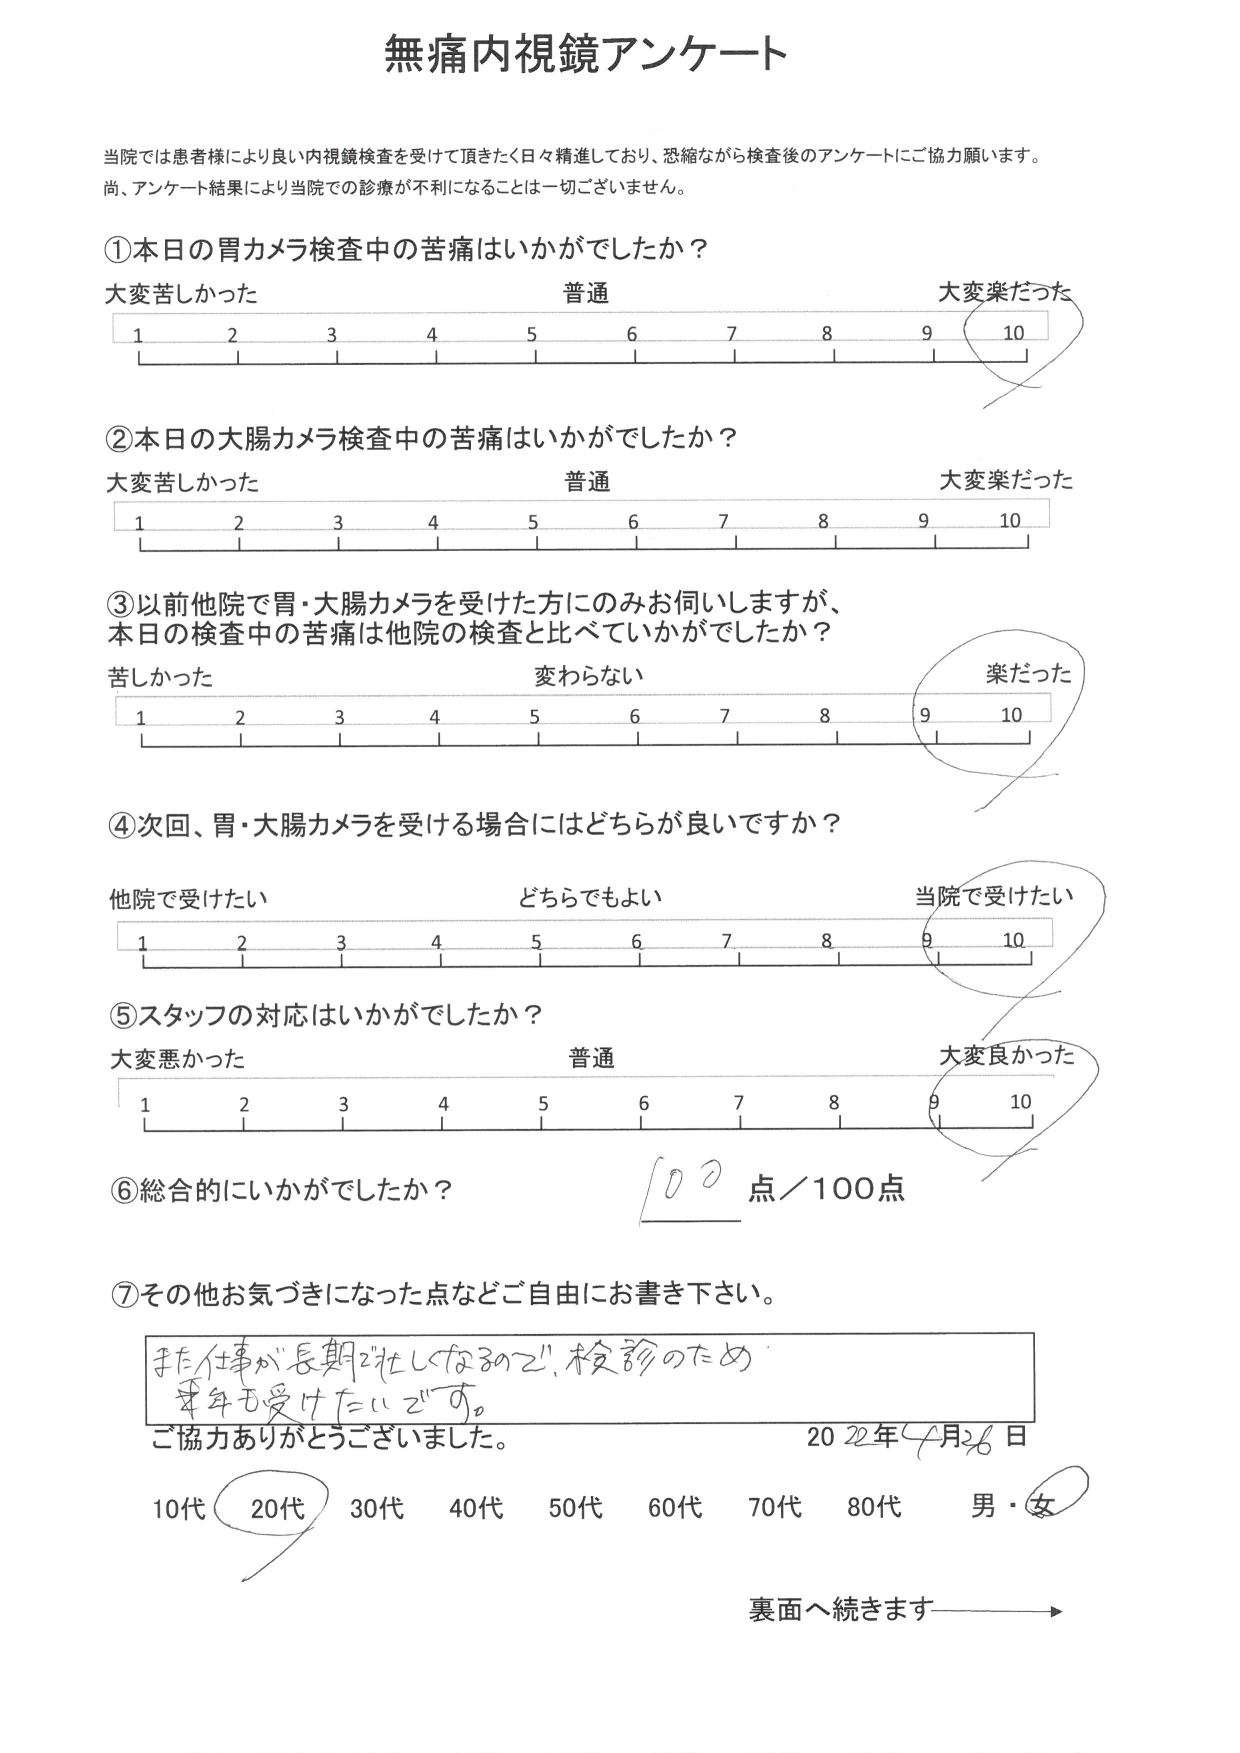 無痛内視鏡アンケート
当院では患者様により良い内視鏡検査を受けて頂きたく日々精進しており、恐縮ながら検査後のアンケートにご協力願います。
尚、アンケート結果により当院での診療が不利になることは一切ございません。
①本日の胃カメラ検査中の苦痛はいかがでしたか？
大変苦しかった 普通 大変楽だった
1 2 3 4 5 6 7 8 9 10
②本日の大腸カメラ検査中の苦痛はいかがでしたか？
大変苦しかった 普通 大変楽だった
1 2 3 4 5 6 7 8 9 10
③以前他院で胃・大腸カメラを受けた方にのみお伺いしますが、
本日の検査中の苦痛は他院の検査と比べていかがでしたか？
苦しかった 変わらない 楽だった
1 2 3 4 5 6 7 8 9 10
④次回、胃・大腸カメラを受ける場合にはどちらが良いですか？
他院で受けたい どちらでもよい 当院で受けたい
1 2 3 4 5 6 7 8 9 10
⑤スタッフの対応はいかがでしたか？
大変悪かった 普通 大変良かった
1 2 3 4 5 6 7 8 9 10
⑥総合的にいかがでしたか？ 100 点／100点
⑦その他お気づきになった点などご自由にお書き下さい。
また仕事が長期で忙しくなるので、検診のため
来年も受けたいです。
ご協力ありがとうございました。 2022年4月26日
10代 20代 30代 40代 50代 60代 70代 80代 男・女
裏面へ続きます